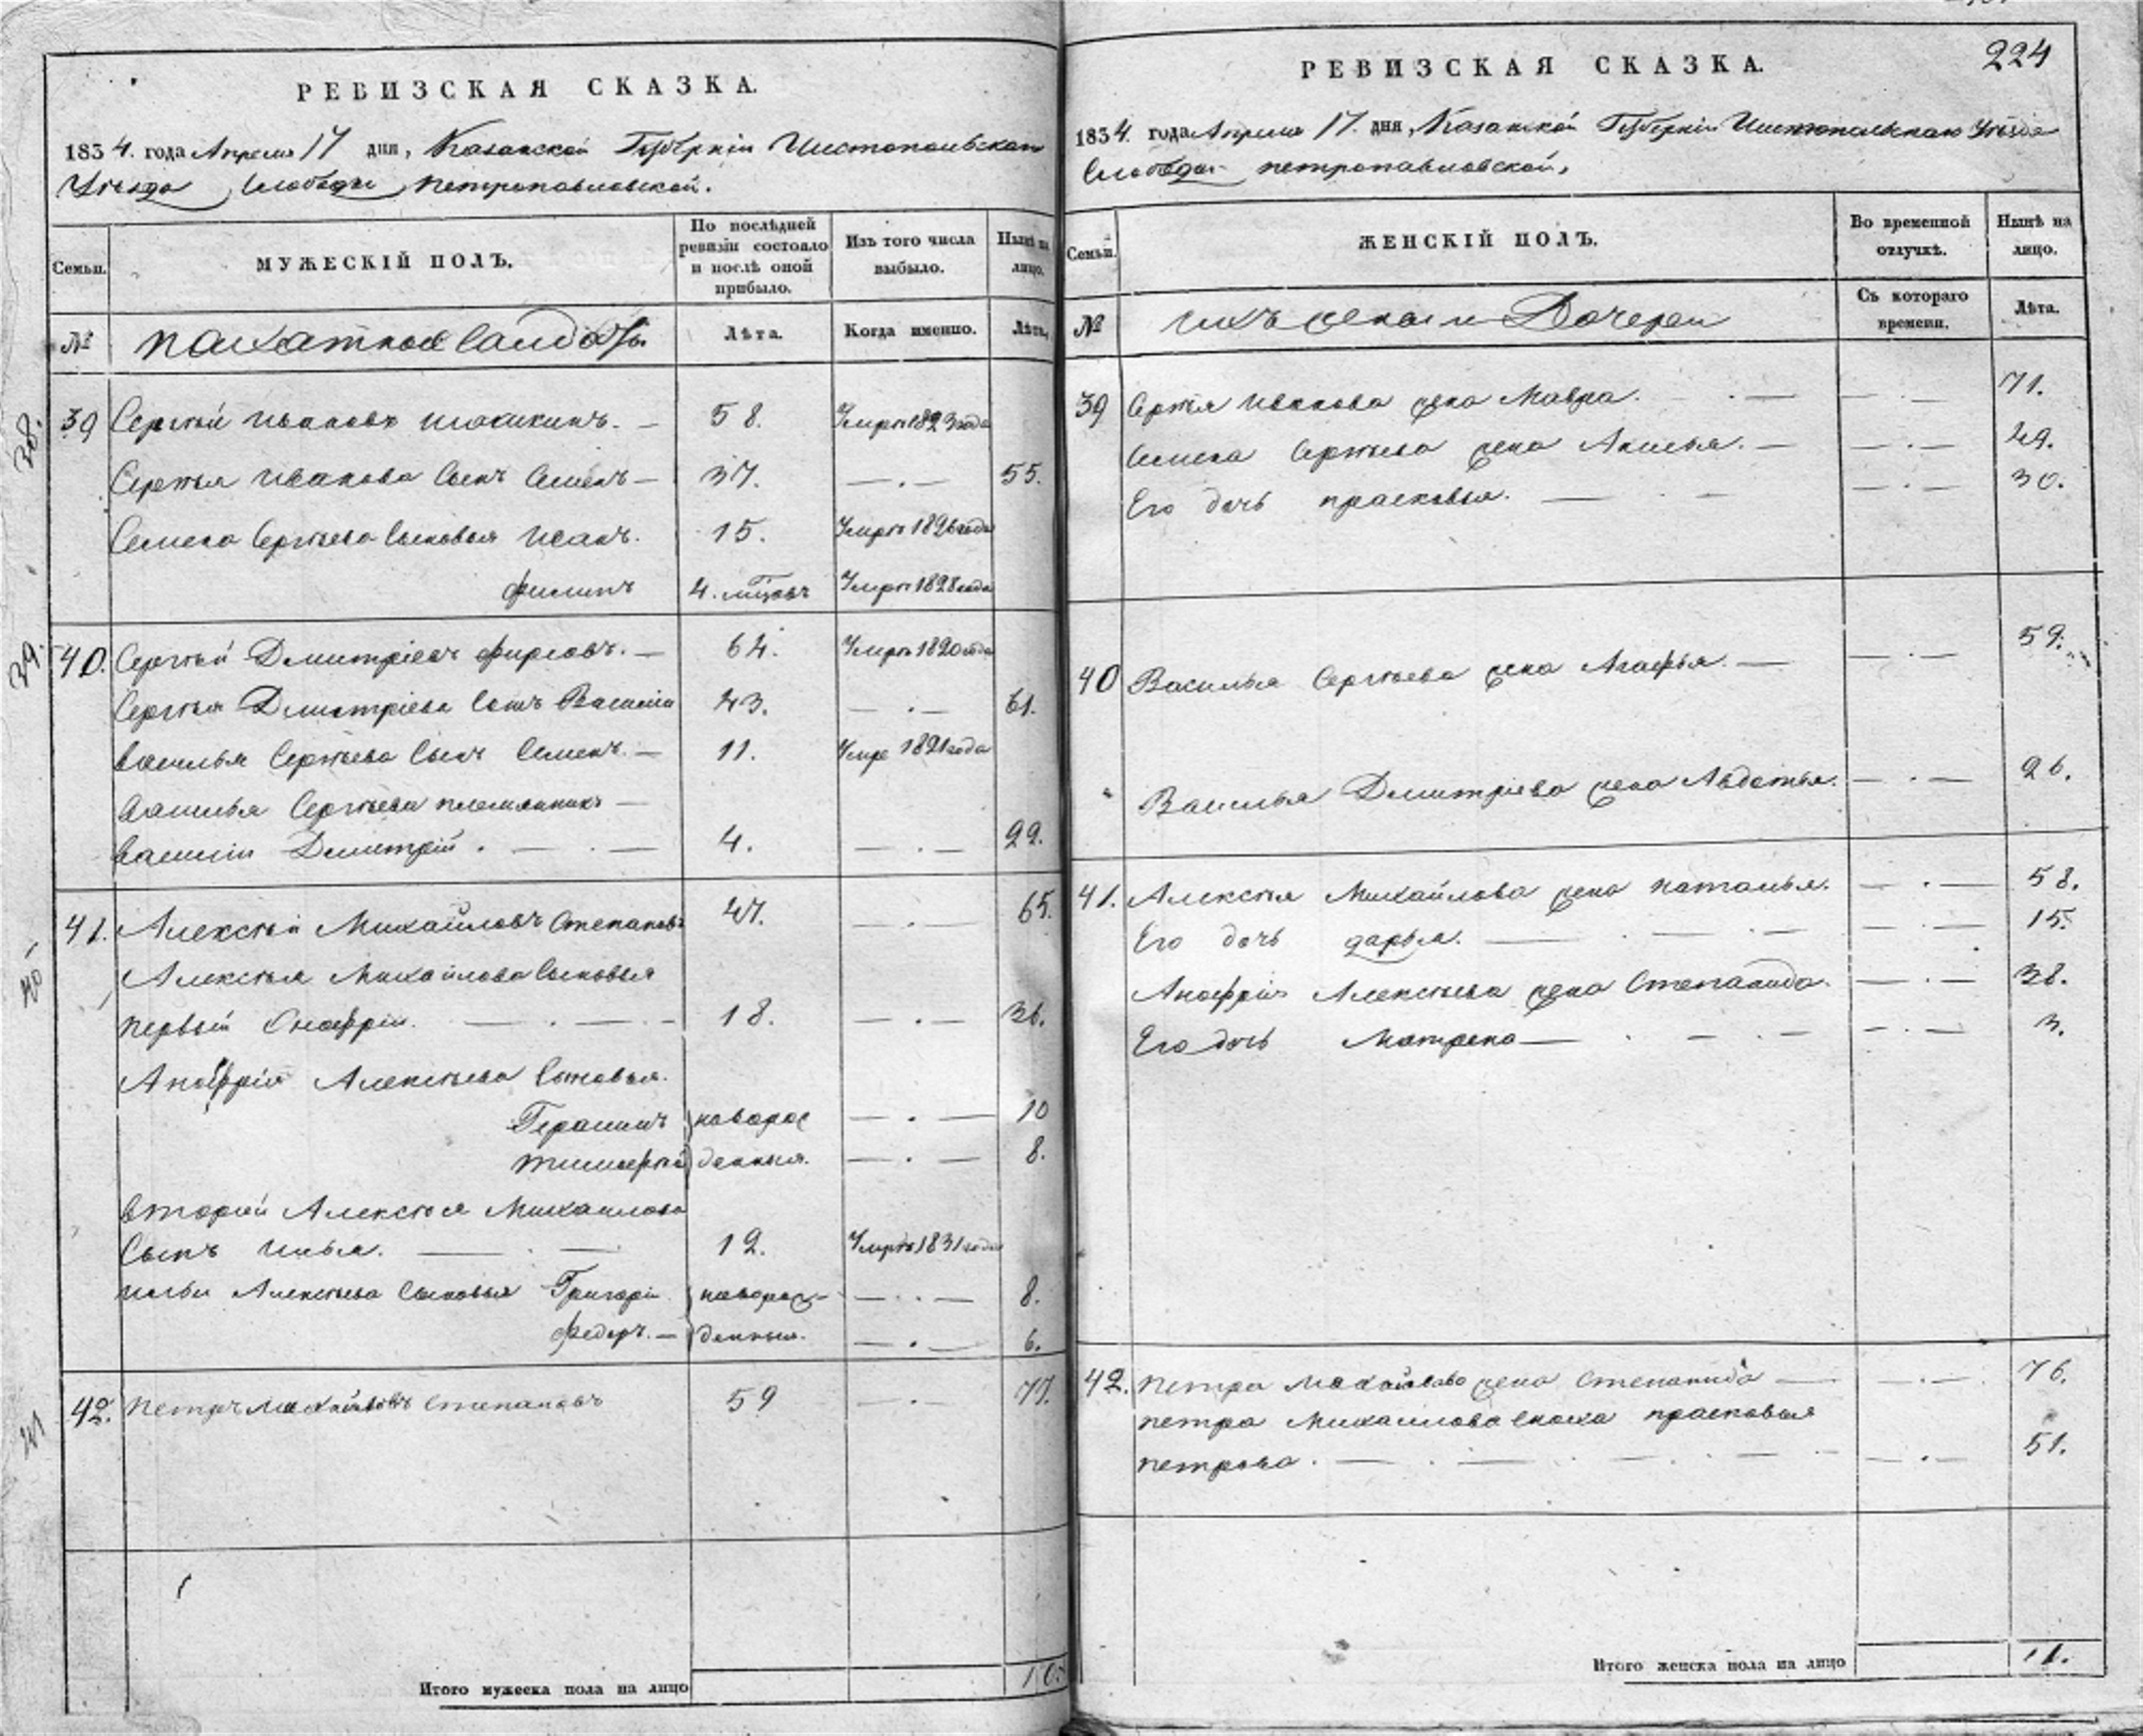 РЕВИЗСКАЯ СКАЗКА.
1834. года Апреля 17 дня, Казанской Губерніи Чистопольскаго
Уѣзда Слободы Петропавловской.
Семьи.
МУЖЕСКІЙ ПОЛЪ.
По послѣдней ревизіи состояло и послѣ оной прибыло.
Изъ того числа выбыло.
Нынѣ на лицо.
№
пахатные солдаты
Лѣта.
Когда именно.
Лѣта.
38.
39 Сергѣй Ивановъ 58. Умръ 1823 года
Сергѣя Иванова Сынъ Семенъ 37. 55.
Семена Сергѣева Сыновья Иванъ. 15. Умръ 1826 года
Филипъ 4. мцовъ Умръ 1828 года
39.
40. Сергѣй Дмитріевъ Фирсовъ. 64. Умръ 1820 года
Сергѣя Дмитріева Сынъ Василіи 43. 61.
Василья Сергѣева Сынъ Семенъ. 11. Умре 1821 года
Василья Сергѣева племянникъ
Василіи Дмитрій. 4. 22.
40
41. Алексѣй Михайловъ Степановъ 47. 65.
Алексѣя Михайлова Сыновья
первый Онофріи. 18. 36.
Анофрія Алексѣева Сыновья.
Герасимъ новорос 10
Тимофѣй денныя. 8.
Вторый Алексѣя Михаилова
Сынъ Илья. 12. Умръ 1831 года
Ильи Алексѣева Сыновья Григоріи новорож 8.
Федоръ. денныя. 6.
41
42. Петръ Михайловъ Степановъ 59 77.
Итого мужеска пола на лицо 10.
224
РЕВИЗСКАЯ СКАЗКА.
1834. года Апреля 17. дня, Казанской Губерніи Чистопольскаго Уѣзда
Слободы петропавловской,
Семьи.
ЖЕНСКІЙ ПОЛЪ.
Во временной отлучкѣ.
Нынѣ на лицо.
№
ихъ жены и Дочери
Съ котораго времени.
Лѣта.
39 Сергѣя Иванова жена Мавра. 71.
Семена Сергѣева жена Акилья. 49.
Его дочь прасковья. 30.
40 Василья Сергѣева жена Агафья. 59.
Василья Дмитріева жена Авдотья. 26.
41. Алексѣя Михайлова жена Наталья. 58.
Его дочь дарья. 15.
Анофрія Алексѣева жена Степанида. 38.
Его дочь Матрена 3.
42. Петра Михайлова жена Степанида 76.
петра Михаилова сноха прасковья
петрова. 51.
Итого женска пола на лицо 11.